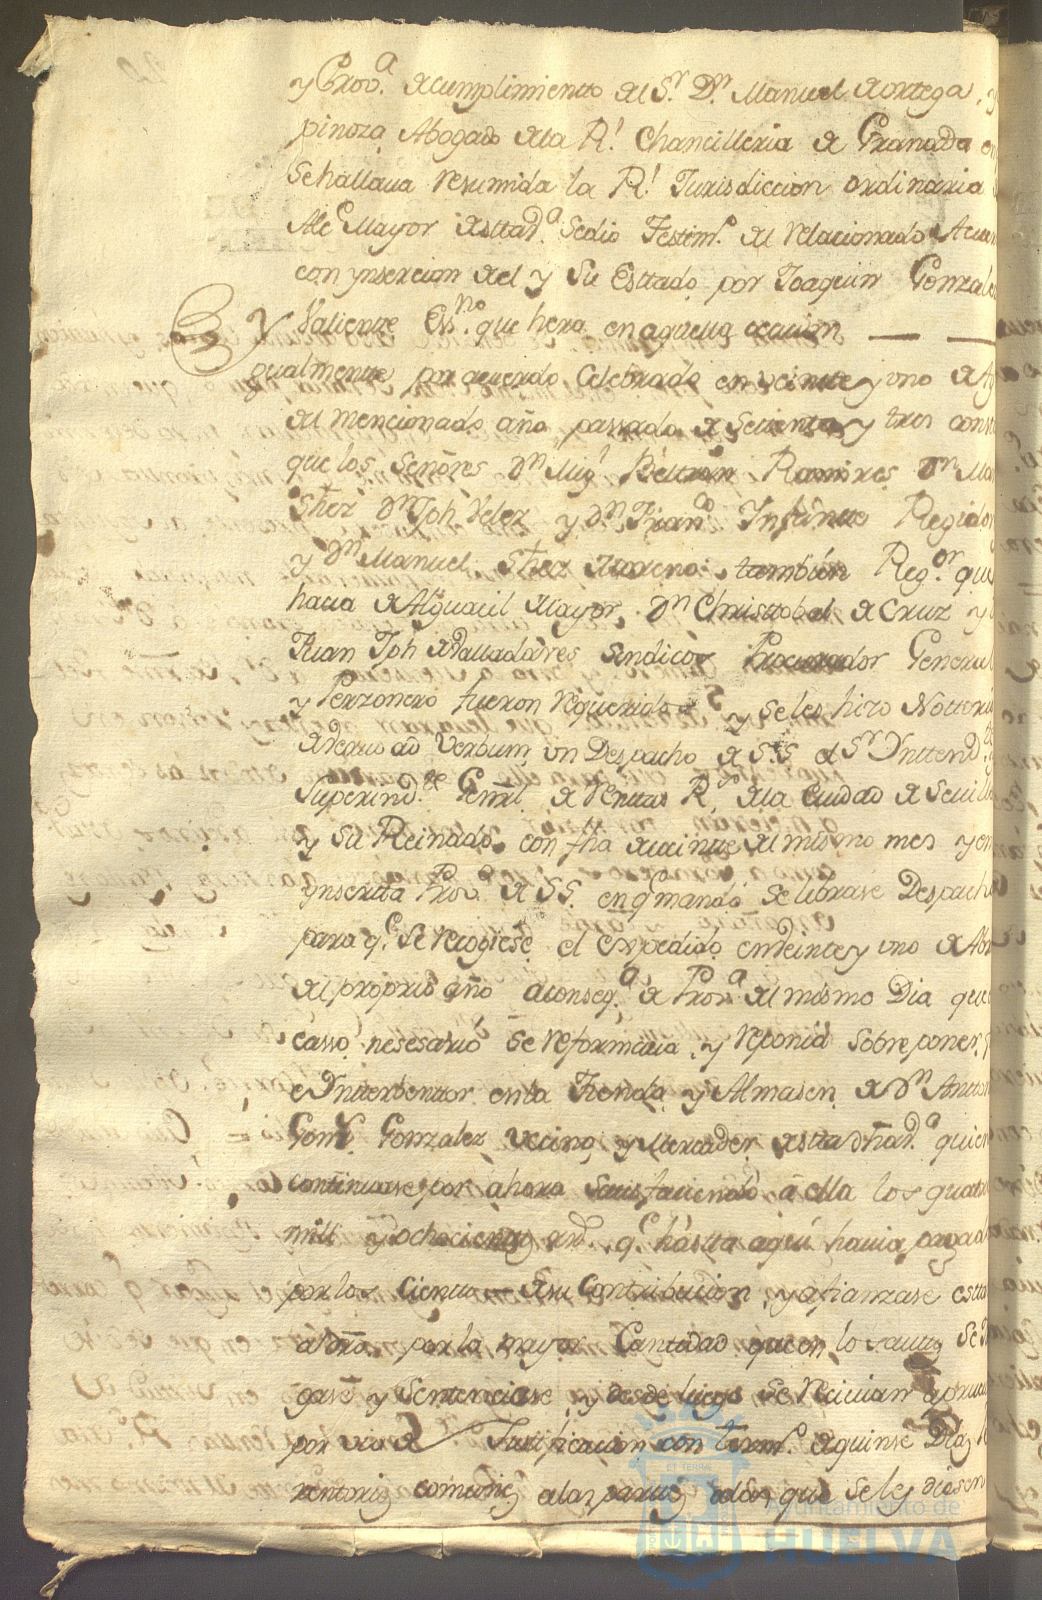 y Prov.ª de cumplimiento del S.r D.n Manuel de ortega, y
pinoza Abogado dela R.l Chancilleria de Granada en
Sehallava resumida la R.l Jurisdiccion ordinaria
Alc.e Mayor destta d.ª Sedio Testim.o del relacionado Acuer
con ynsercion del y Su Esttado por Joaquin Gonzalez
Valiente Ess.no que hera en aquella occasion
Y
gualmente por acuerdo Celebrado en veinte y uno de Ag
del mencionado año passado de Settenta y tres const
que los Señores D.n Mig.l Beltran Ramires D.n Man
Shez D.n Jph Velez y D.n Fran.co Infante Regidor
y D.n Manuel Shez Moreno tambien Reg.or que
hacia de Alguacil Mayor, D.n Christtobal de Cruz y
Juan Jph de Valladares Sindicos Procurador General
y Perzonero fueron requeridos y se les hizo Notteri
de verbo ad Verbum un Despacho de S.S. el S.r Ynttend.te
Superind.te Genrl. de renttas R.s dela Ciudad de Sevilla
y Su Reinado con fha de veinte del mismo mes y en
ynserta Prov.ª de S.S. en q mandó se librase Despacho
para q.e Se recogiese el expedido en veinte y uno de Abr
del proprio año aconseq.ª de Prov.ª del mismo Dia que
casso nesesario se reformava, y reponia sobre poner
e Yntterbentor en la Tienda y Almasen de D.n Anton
Gonzalez vecino y Mercader destta dha d.ª quien
continuase por ahora Sattisfaciendo á ella los quatro
mill y ochocientos rrd.s q.e hastta aqui havia pagado
por los Cientos de su Contribucion, y afianzase estta
por la mayor Cantidad que en los auttos Se
gase y Sentenciase y desde luego Se recivian aprueva
por via de Justificacion con term.o de quinse Dias
rentorios comunes alas partes adon que se les diesen
Ayuntamiento de
HUELVA